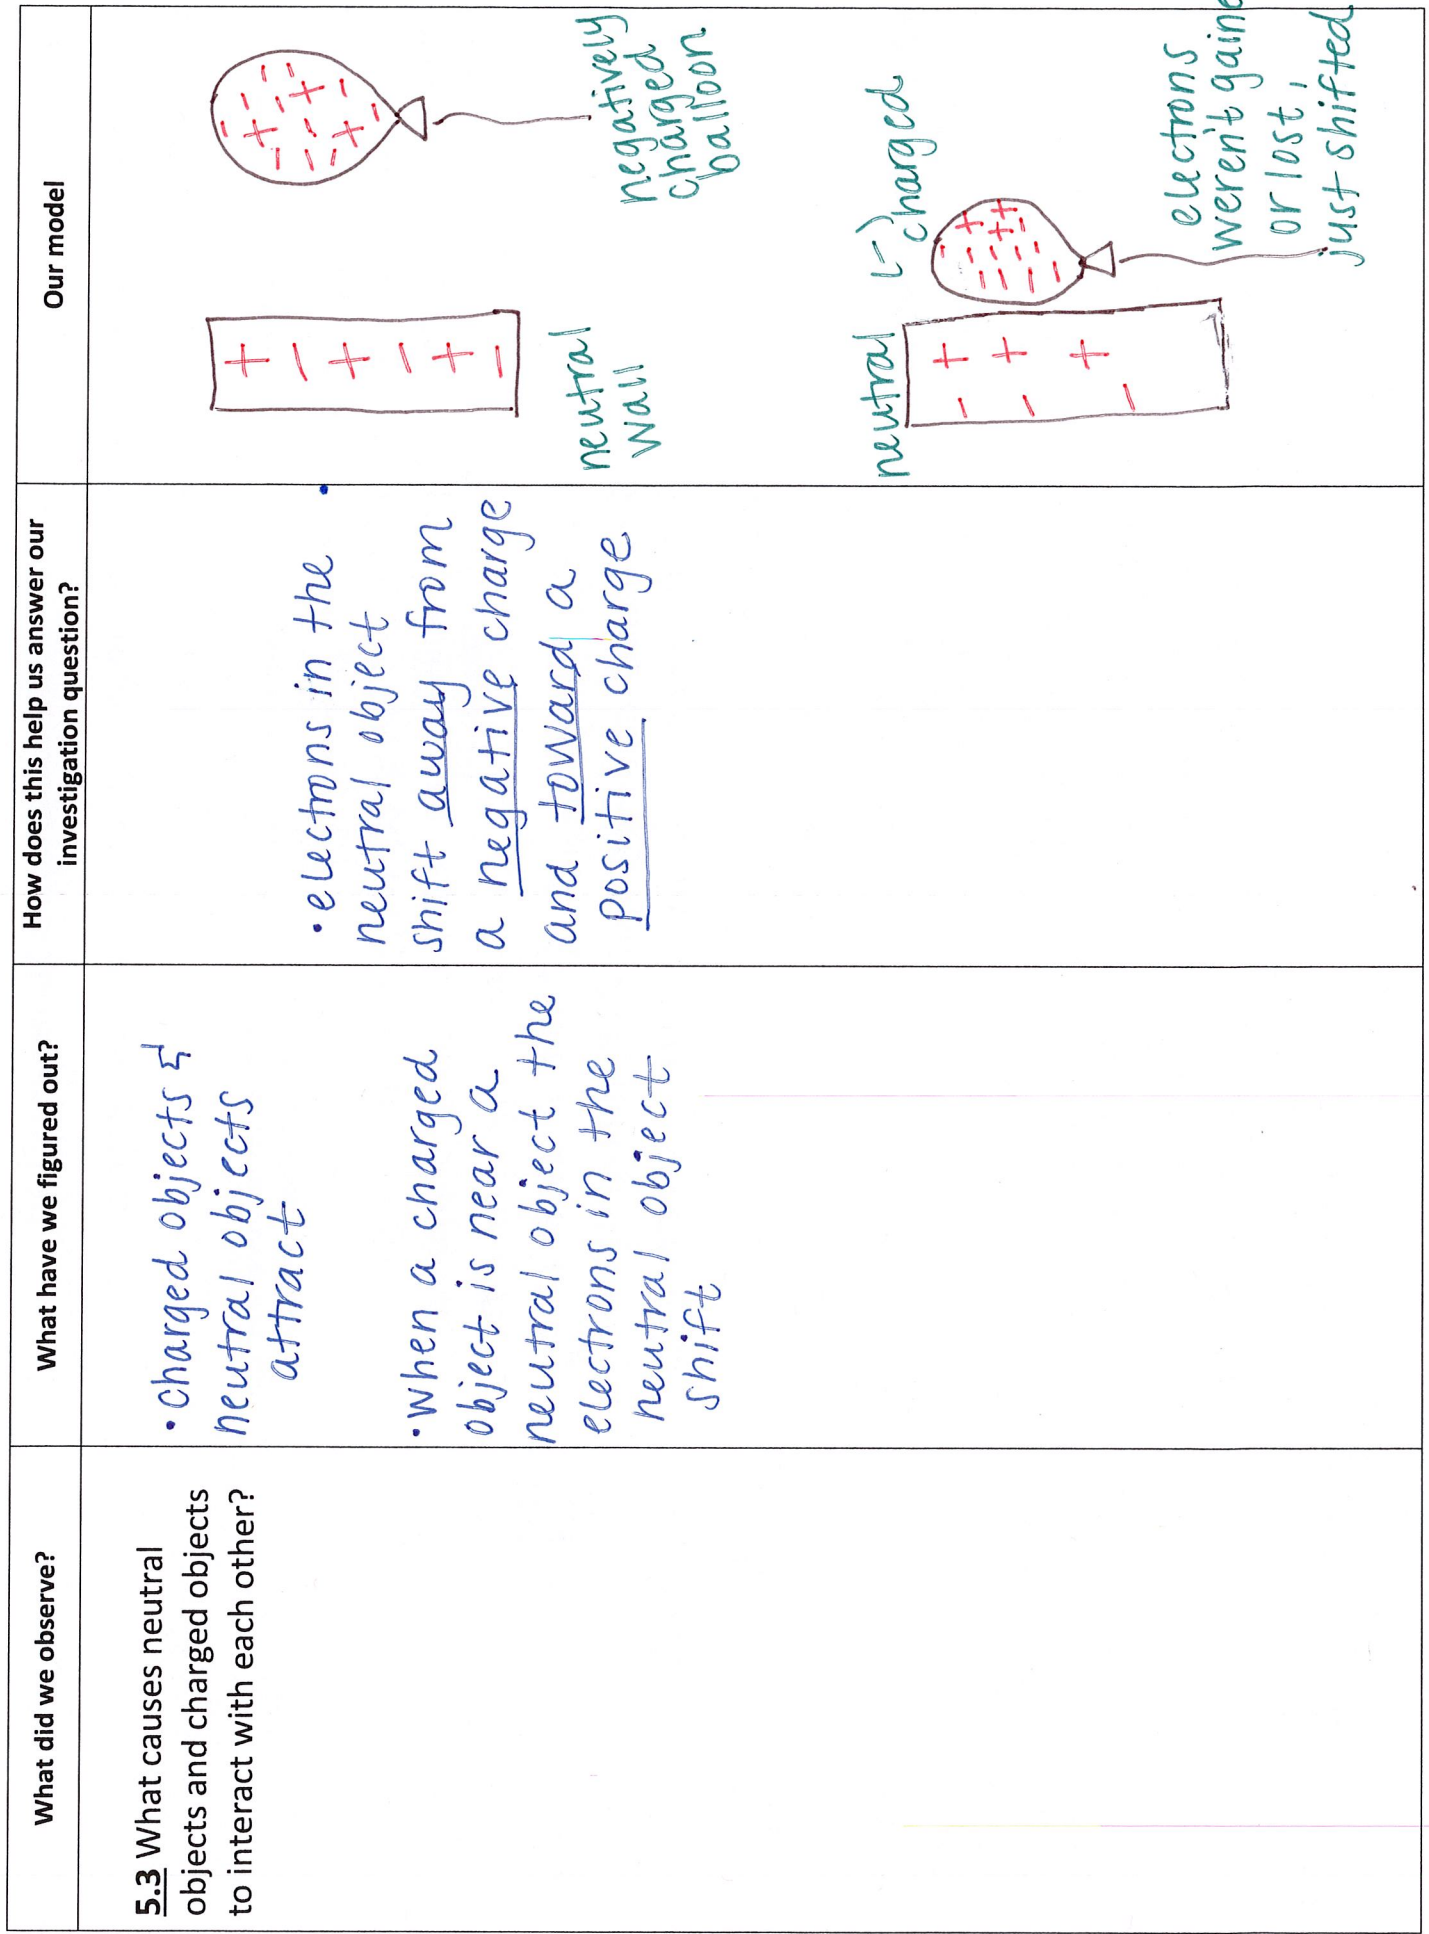 What did we observe?
What have we figured out?
How does this help us answer our
investigation question?
Our model
5.3 What causes neutral
objects and charged objects
to interact with each other?
• Charged objects &
neutral objects
attract
• When a charged
object is near a
neutral object the
electrons in the
neutral object
shift
• electrons in the
neutral object
shift away from
a negative charge
and toward a
positive charge
+ - + - + -
neutral
wall
negatively
charged
balloon
neutral
(-)
charged
+ + +
- - -
electrons
weren't gaine
or lost,
just shifted